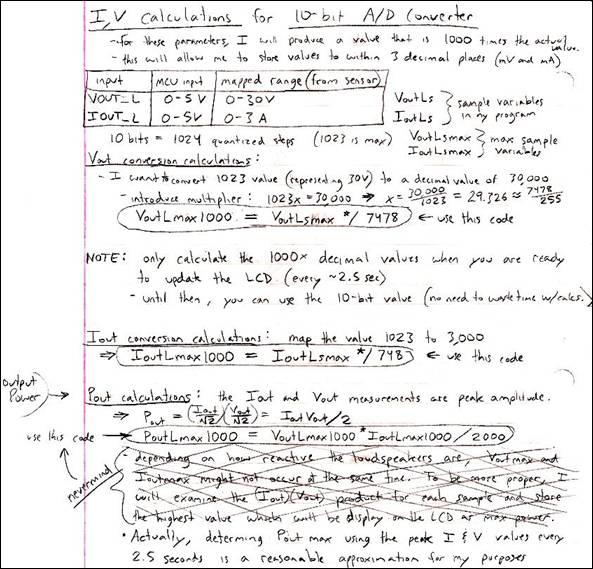 I,V calculations for 10-bit A/D Converter
- for these parameters, I will produce a value that is 1000 times the actual value.
- this will allow me to store values to within 3 decimal places (mV and mA)
input MCU input mapped range (from sensor)
VOUT_L 0-5V 0-30V
IOUT_L 0-5V 0-3A
VoutLs } sample variables
IoutLs } in my program
10 bits = 1024 quantized steps (1023 is max)
VoutLsmax } max sample
IoutLsmax } variables
Vout conversion calculations:
- I want to convert 1023 value (representing 30V) to a decimal value of 30,000
- introduce multiplier: 1023x = 30,000 → x = 30,000/1023 = 29.326 ≈ 7478/255
VoutLmax1000 = VoutLsmax */ 7478 ← use this code
NOTE: only calculate the 1000x decimal values when you are ready
to update the LCD (every ~2.5 sec)
- until then, you can use the 10-bit value (no need to waste time w/calcs.)
Iout conversion calculations: map the value 1023 to 3,000
⇒ IoutLmax1000 = IoutLsmax */ 748 ← use this code
output
Power →
Pout calculations: the Iout and Vout measurements are peak amplitude.
⇒ Pout = (Iout/√2)(Vout/√2) = IoutVout/2
use this code → PoutLmax1000 = VoutLmax1000 * IoutLmax1000 / 2000
nevermind
- depending on how reactive the loudspeakers are, Voutmax and
Ioutmax might not occur at the same time. To be more proper, I
will examine the (Iout)(Vout) product for each sample and store
the highest value which will be display on the LCD as max power.
• Actually, determining Pout max using the peak I & V values every
2.5 seconds is a reasonable approximation for my purposes